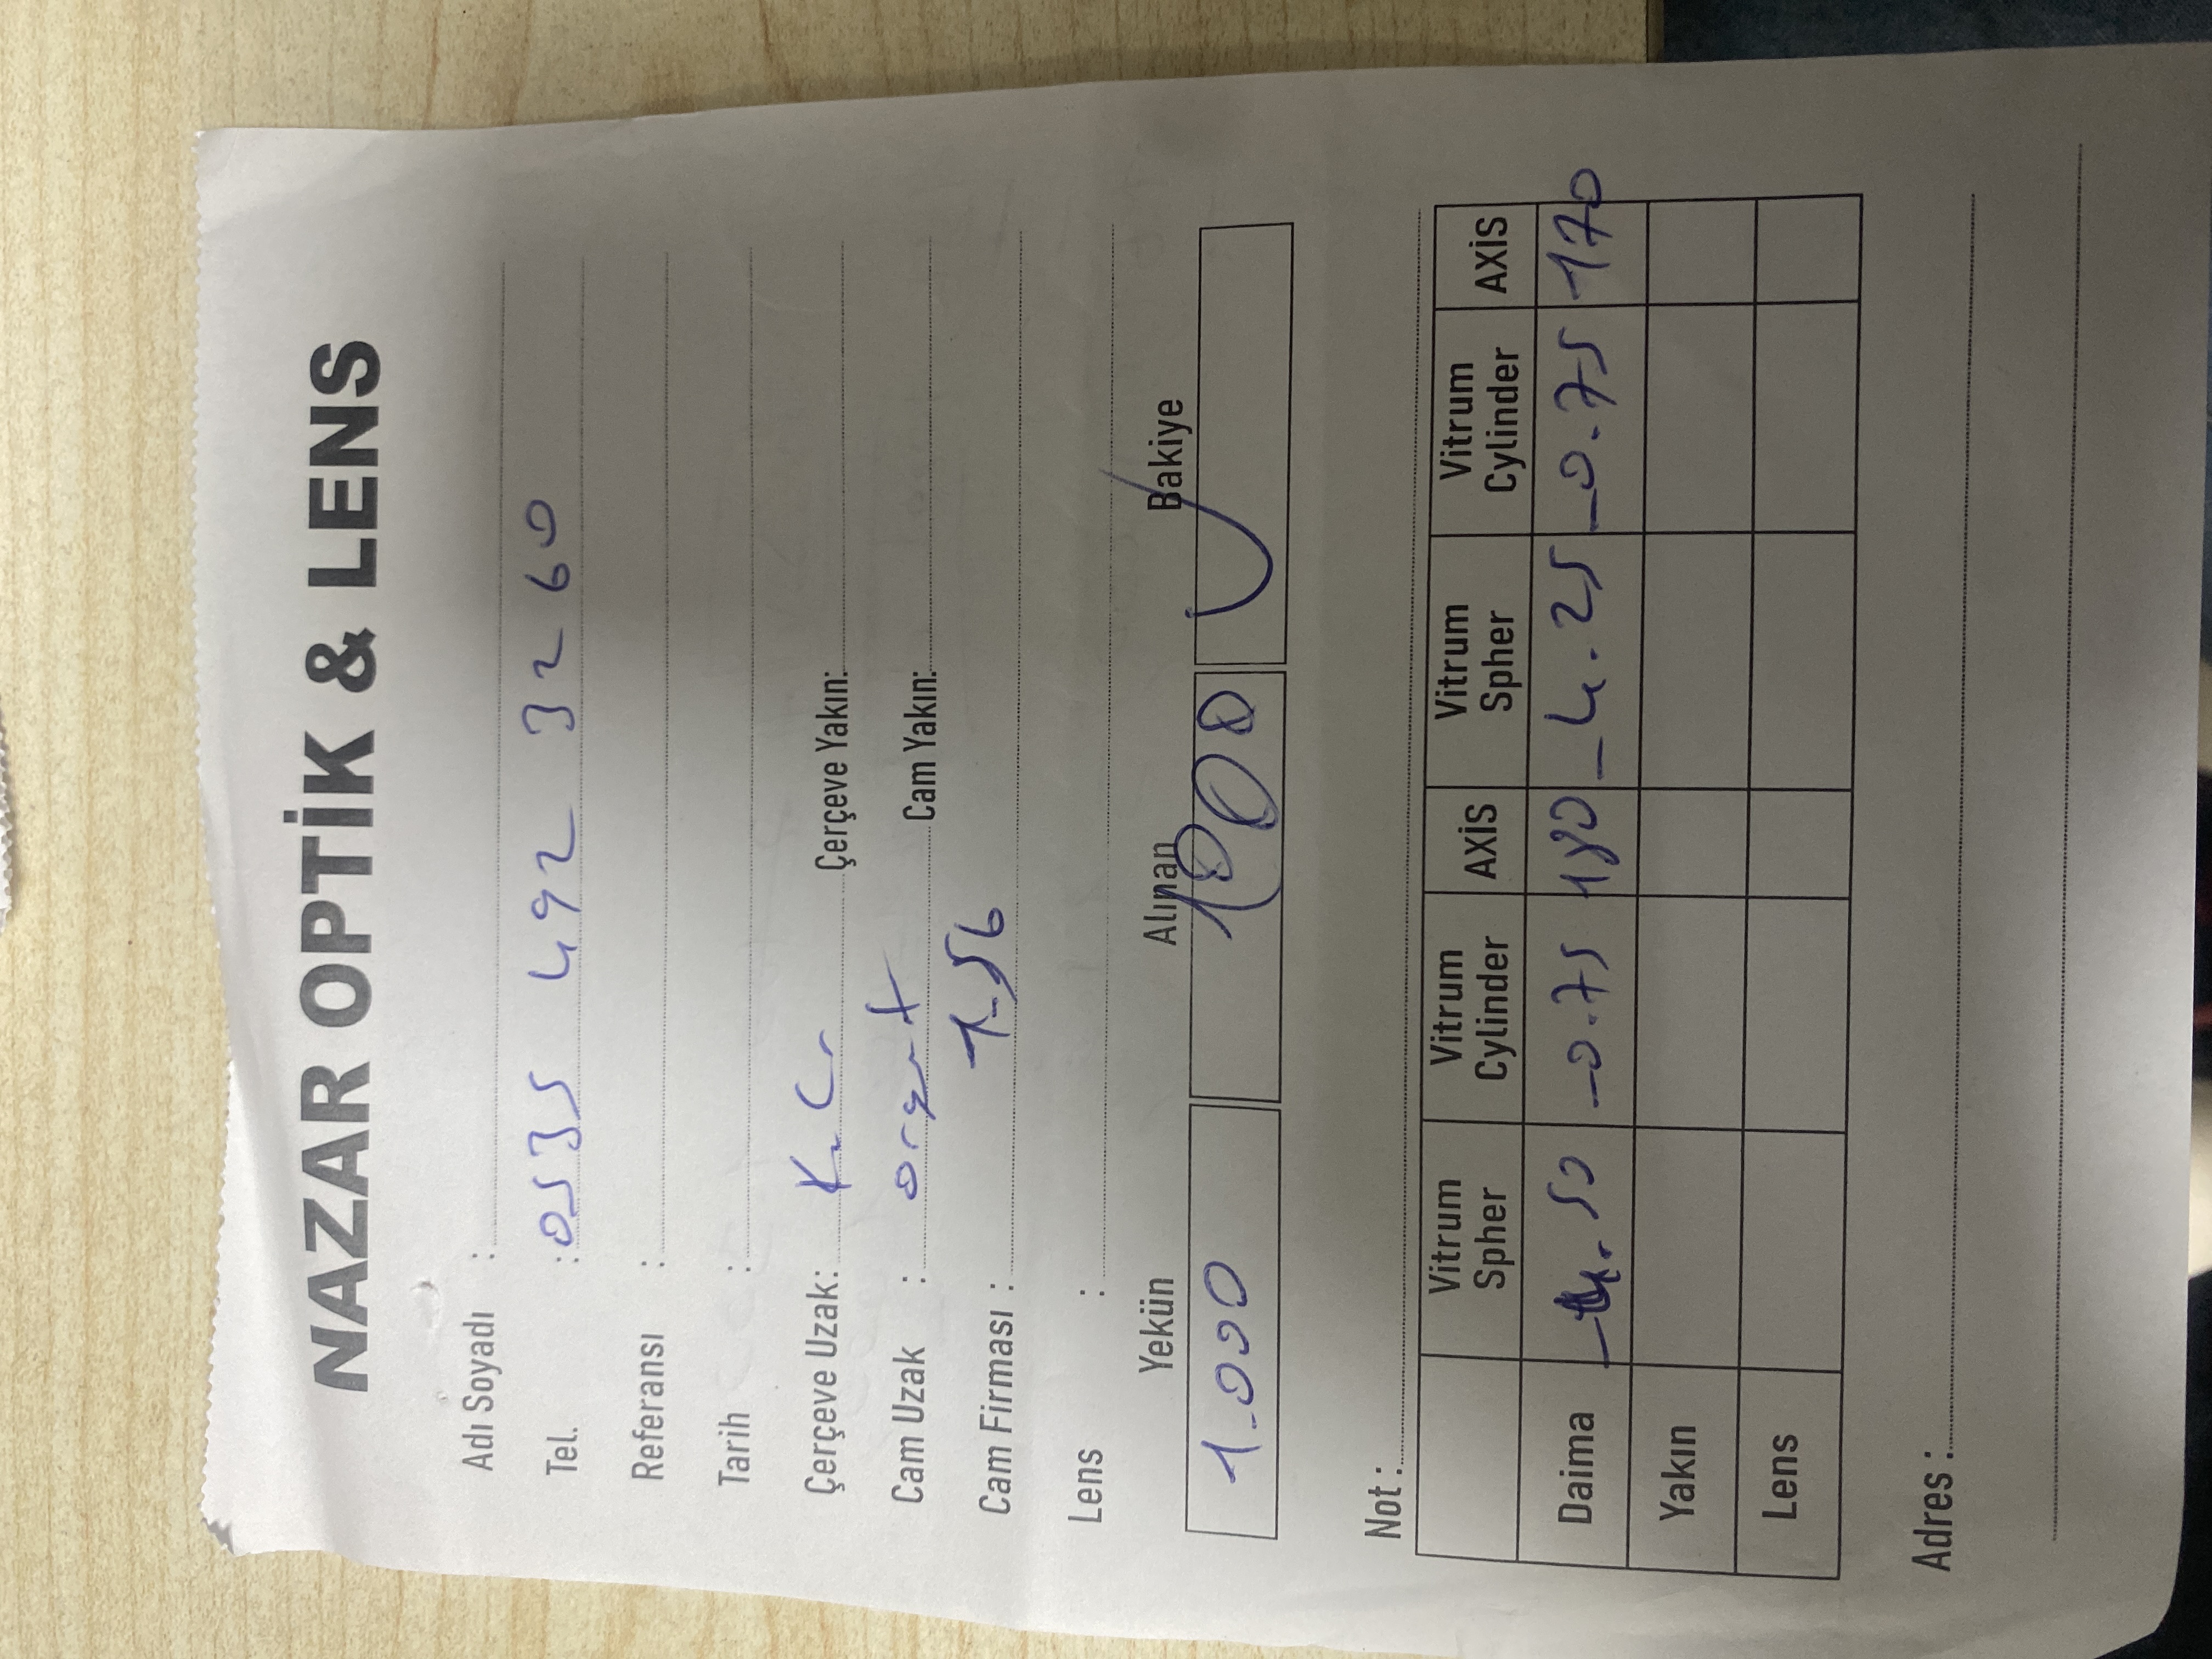 NAZAR OPTİK & LENS
Adı Soyadı :
Tel. : 0535 492 32 60
Referansı :
Tarih :
Çerçeve Uzak: Çerçeve Yakın:
Cam Uzak : Cam Yakın:
Cam Firması : 1.56
Lens :
Yekün Alınan Bakiye
1.000 1000
Not :
Vitrum Spher Vitrum Cylinder AXİS Vitrum Spher Vitrum Cylinder AXİS
Daima -4.50 -0.75 180 -4.25 -0.75 170
Yakın
Lens
Adres :